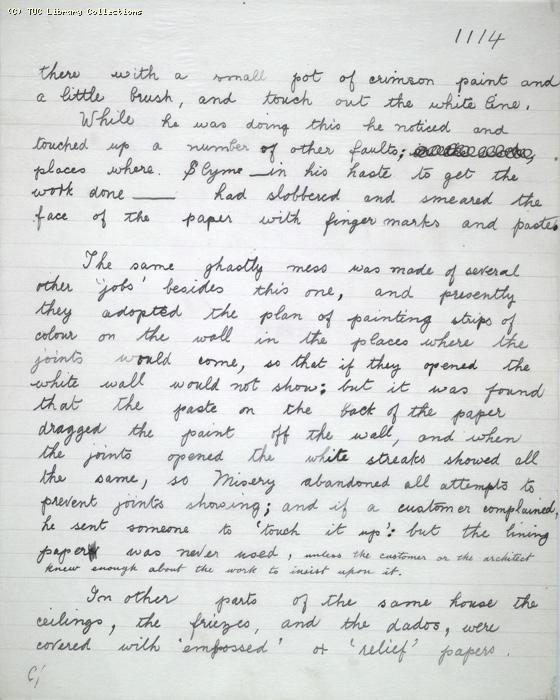 (C) TUC Library Collections
1114
there with a small pot of crimson paint and
a little brush, and touch out the white line.
While he was doing this he noticed and
touched up a number of other faults;
places where. Slyme — in his haste to get the
work done — had slobbered and smeared the
face of the paper with finger marks and paste.
The same ghastly mess was made of several
other 'jobs' besides this one, and presently
they adopted the plan of painting strips of
colour on the wall in the places where the
joints would come, so that if they opened the
white wall would not show: but it was found
that the paste on the back of the paper
dragged the paint off the wall, and when
the joints opened the white streaks showed all
the same, so Misery abandoned all attempts to
prevent joints showing; and if a customer complained,
he sent someone to 'touch it up': but the lining
paper was never used, unless the customer or the architect
knew enough about the work to insist upon it.
In other parts of the same house the
ceilings, the friezes, and the dados, were
covered with 'embossed' or 'relief' papers.